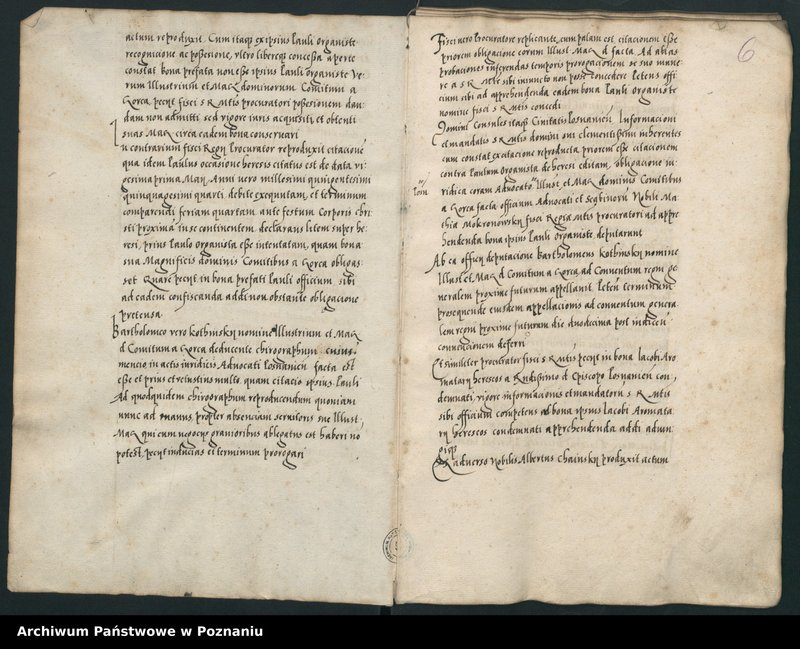 actum reproduxit. Cum itaqz ex ipsius Pauli Organiste
recognicione ac possesione, vltro libereqz concessa aperte
constat bona prefata non esse ipsius Pauli Organiste Ve-
rum Illustrium et Mag dominorum Comitum a
Gorca, petyt fisci S R Mtis procuratori possesionem dan-
dam non admitti sed vigore iuris acquisiti et obtenti
suas Mag circa eadem bona conseruari
n contrarium fisci Regij Procurator reproduxit citacione
qua idem Paulus occasione heresis citatus est de data vi-
gesima prima Maij Anni vero millesimi quingentesimi
quinquagesimi quarti, debite exequutam, et terminum
comparendi feriam quartam ante festum Corporis chri-
sti proxima in se continentem, declarans litem super he-
resi, prius Paulo Organista esse intentatam, quam bona
sua Magnificis dominis Comitibus a Gorca obligas-
set Quare petyt in bona prefati Pauli officium sibi
ad eadem confiscanda addi non obstante obligacione
pretensa
Bartholomeo vero Kothinsky nomine Illustrium et Mag
d Comitum a Gorca deducente chirographum cuius
mencio in actis iuridicis Aduocati Posnanien facta est
esse et prius et vetustius multo quam citacio ipsius Pauli
Ad quodquidem chirographum reproducendum quoniam
nunc ad manus, propter absenciam seruitoris sue Illust
Mag qui cum negocys grauioribus ablegatus est haberi no
potest, petyt inducias et terminum prorogari
6
Fisci vero Procuratore replicante, cum palam est citacionem esse
priorem obligacione eorum Illust Mag d facta Ad alias
probaciones inferendas temporis prorogacionem se suo mune-
re a S R Mte sibi iniuncto non posse concedere petens offi-
cium sibi ad apprehendenda eadem bona Pauli organiste
nomine fisci S R Mtis concedi
Domini Consules itaqz Ciuitatis Posnanien Informacioni
et mandatis S R Mtis domini sui clementissimi inherentes
cum constat ex citacione reproducta priorem esse citacionem
contra Paulum Organista de heresi editam, obligacione iu-
ridica coram Aduocato Illust et Mag dominis Comitibus
a Gorca facta officium Aduocati et scabinorum Nobili Ma-
thia Mokronowsky fisci Regia Mtis procuratori ad appre-
hendenda bona ipsius Pauli Organiste deputarunt
Ab ea officij deputacione Bartholomeus Kothinsky nomine
Illust et Mag d Comitum a Gorca ad Conuentum regni ge-
neralem proxime futurum appellauit. Petens terminum
prosequende eiusdem appellacionis ad conuentum genera-
lem regni proxime futurum die duodecima post indicen
conuencionem deferri
Et similiter procurator fisci S R Mtis petyt in bona Iacobi Aro-
matary hereseos a Rndissimo d Episcopo Posnanien con-
demnati, vigore informacionis et mandatorum S R Mtis
sibi officium competens ad bona ipsius Iacobi Aromata-
ry hereseos condemnati apprehendenda addi adiun-
giqz
Ex aduerso Nobilis Albertus Chainsky produxit actum